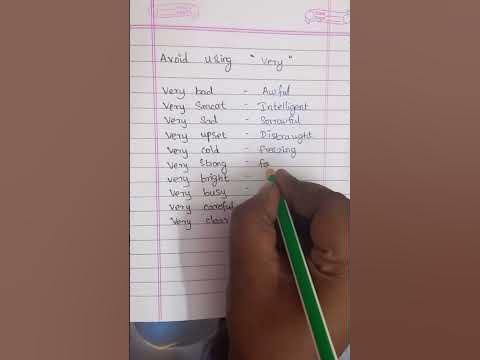 Avoid using "Very"
Very bad - Awful
Very Smart - Intelligent
Very Sad - Sorrowful
Very upset - Distraught
Very cold - freezing
Very Strong - fo
very bright -
Very busy -
Very careful
Very clear